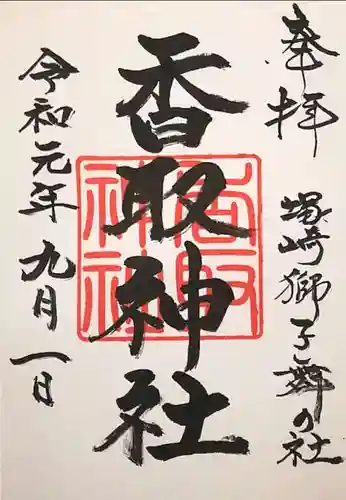 奉拝
塚崎獅子舞の社
香取神社
香取神社
令和元年九月一日